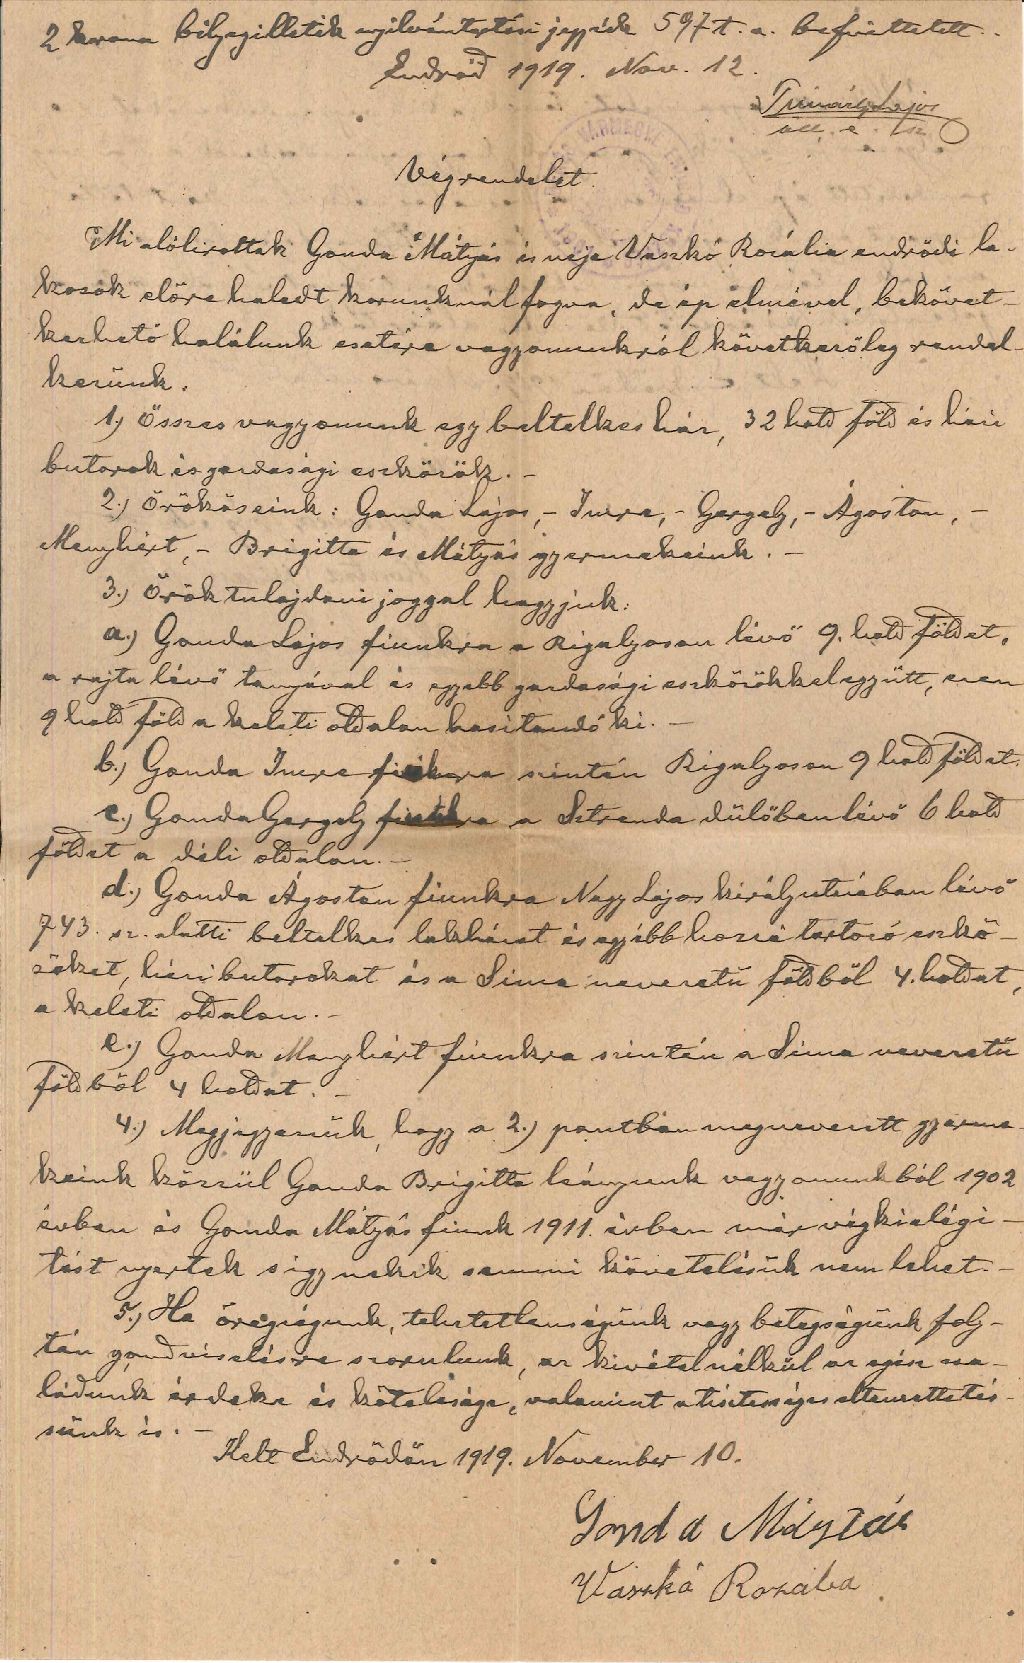 2 korona bélyegilleték nyilvántartási jegyzék 597 t. a. befizettetett.
Endrőd 1919. Nov. 12.
Timár Lajos
Végrendelet.
Mi alólirottak Gonda Mátyás és neje Vaszkó Rozália endrődi la-
kosok előrehaladt korunknál fogva, de ép elmével, bekövet-
kezhető halálunk esetére vagyonunkról következőleg rendel-
kezünk.
1.) Összes vagyonunk egy beltelkes ház, 32 hold föld és házi
butorok és gazdasági eszközök. -
2.) Örököseink: Gonda Lajos, - Imre, - Gergely, - Ágoston, -
Menyhért, - Brigitta és Mátyás gyermekeink. -
3.) Örök tulajdoni joggal hagyjuk:
a.) Gonda Lajos fiunkra a Rigalyoson lévő 9. hold földet,
a rajta lévő tanyával és egyébb gazdasági eszközökkel együtt, ezen
9 hold föld a keleti oldalon hasitandó ki. -
b.) Gonda Imre fiunkra szintén Rigalyoson 9 hold földet.
c.) Gonda Gergely fiunkra a Sztrenda dülőben lévő 6 hold
földet a déli oldalon. -
d.) Gonda Ágoston fiunkra Nagy Lajos király utcában lévő
743. sz. alatti beltelkes lakházat és egyébb hozzá tartozó eszkö-
zöket, házi butorokat és a Sima nevezetű földből 4. holdat,
a keleti oldalon. -
e.) Gonda Menyhért fiunkra szintén a Sima nevezetű
földből 4 holdat. -
4.) Megjegyezzük, hogy a 2.) pontban megnevezett gyerme-
keink közzül Gonda Brigitta leányunk vagyonunkból 1902
évben és Gonda Mátyás fiunk 1911. évben már végkielégi-
tést nyertek s igy nekik semmi követelésük nem lehet. -
5.) Ha öregségünk, tehetetlenségünk vagy betegségünk foly-
tán gondviselésre szorulunk, az kivétel nélkül az egész csa-
ládunk érdeke és kötelessége, valamint a tisztességes eltemettetés-
sünk is. -
Kelt Endrődön 1919. November 10.
Gonda Mátyás
Vaszkó Rozália